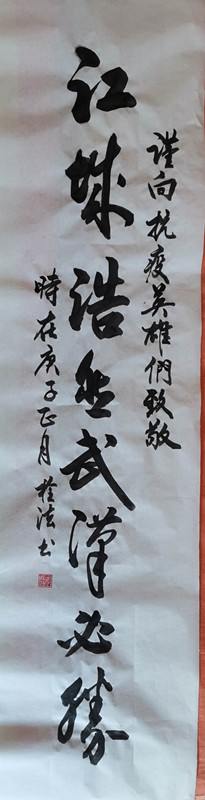 謹向抗疫英雄們致敬
江城浩然武漢必勝
時在庚子正月桂法书